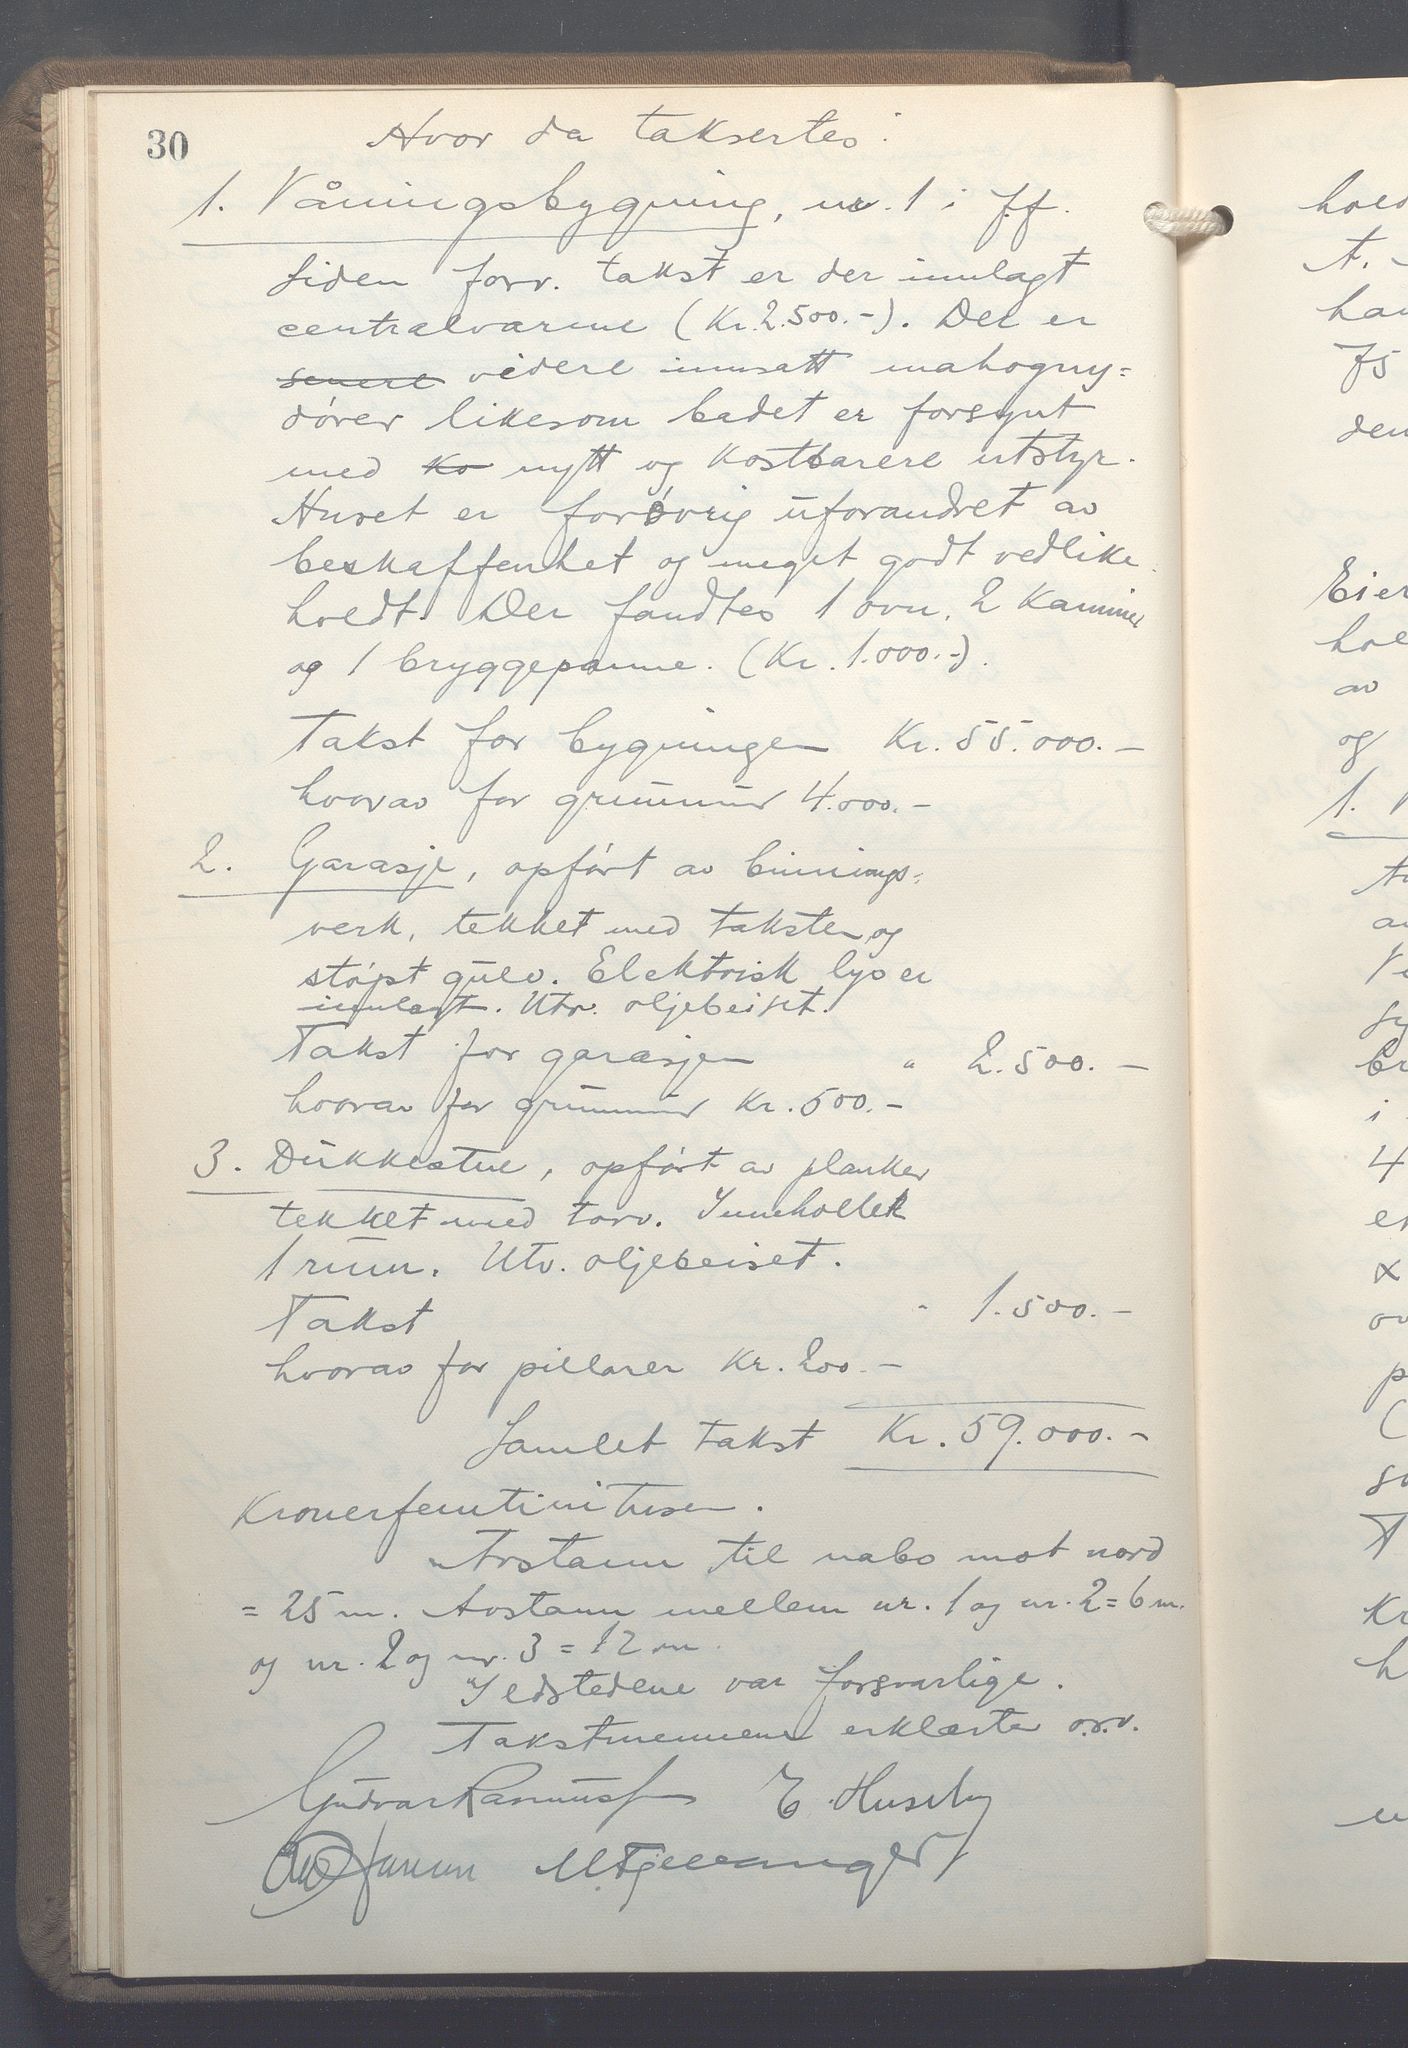 30
Hvor da taksertes:
1. Våningsbygning, nr. 1 i f.f.
Siden forr. takst er der innlagt
centralvarme (Kr. 2.500.-). Der er
senere videre innsatt mahogny=
dører likesom badet er forsynt
med ko nytt og kostbarere utstyr.
Huset er forøvrig uforandret av
beskaffenhet og meget godt vedlike
holdt. Der fandtes 1 ovn, 2 kaminer
og 1 bryggepanne. (Kr. 1.000.-).
Takst for bygningen Kr. 55.000.-
hvorav for grunnmur 4.000.-
2. Garasje, opført av binnings=
verk, tekket med taksten og
støpt gulv. Elektrisk lys er
innlagt. Utv. oljebeiset.
Takst for garasjen " 2.500.-
hvorav for grunnmur Kr. 500.-
3. Dukkestue, opført av planker
tekket med torv. Inneholder
1 rum. Utv. oljebeiset.
Takst " 1.500.-
hvorav for pillarer Kr. 200.-
Samlet takst Kr. 59.000.-
Kronerfemtinitusen.
Avstann til nabo mot nord
= 25 m. Avstann mellem nr. 1 og nr. 2 = 6 m.
og nr. 2 og nr. 3 = 12 m.
Ildstedene var forsvarlige.
Takstmennene erklærte o.s.v.
Gudvar Rasmussen E. Huseby
M. Tjelvanger
hold
A.
han
75
den
Eier
hol
av
og
1. V
i
4
er
x
ov
p
(
so
T
Kr
h